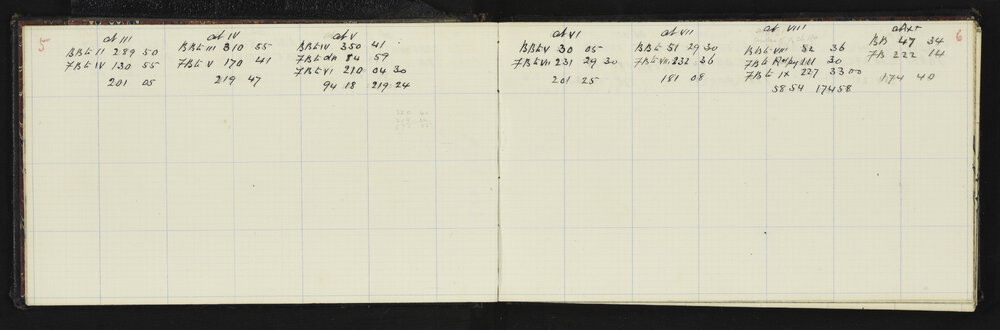 5
at III
BB to II 289 50
FB to IV 130 55
201 05
at IV
BB to III 310 55
FB to V 170 41
219 47
at V
BB to IV 350 41
FB to 84 59
FB to VI 210 04 30
94 18 219 24
6
at VI
BB to V 30 05
FB to VII 231 29 30
201 25
at VII
BB to 51 29 30
FB to VIII 232 36
181 08
at VIII
BB to VII 52 36
FB to 111 30
FB to IX 227 33 00
58 54 174 58
at IX
BB 47 34
FB 222 14
174 40